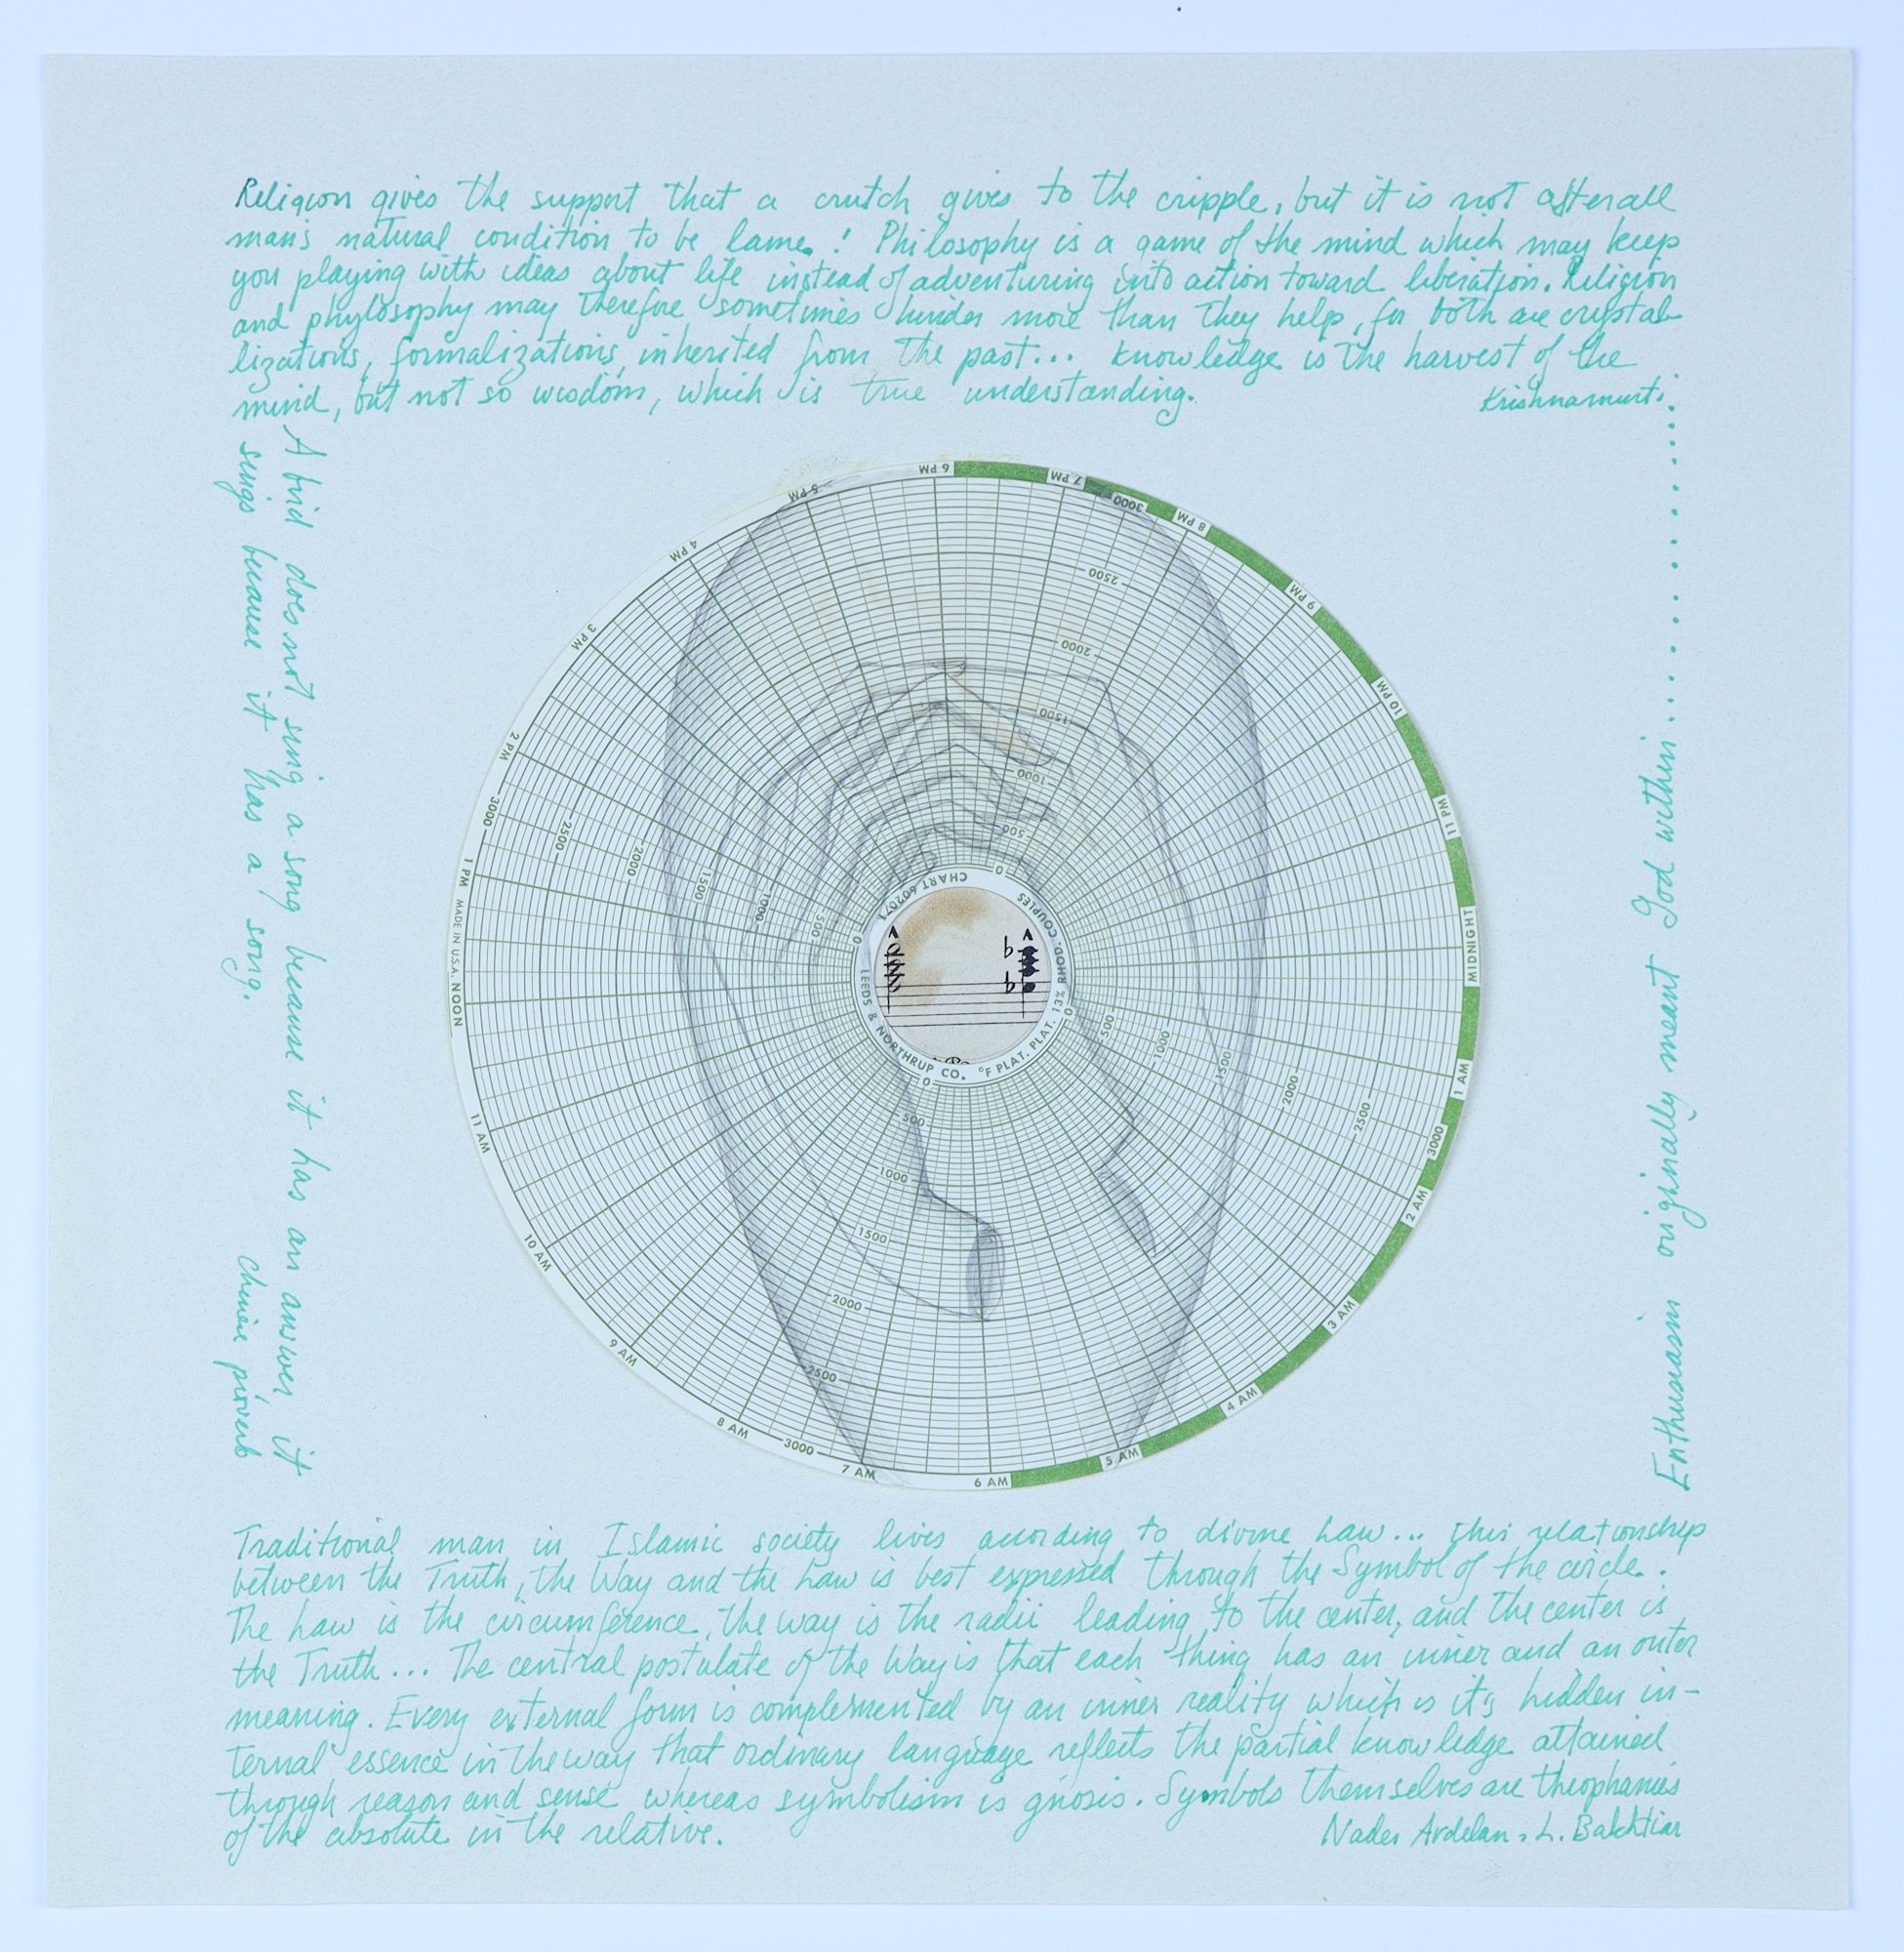 Religion gives the support that a crutch gives to the cripple, but it is not afterall
man's natural condition to be lame. ! Philosophy is a game of the mind which may keep
you playing with ideas about life instead of adventuring into action toward liberation. Religion
and phylosophy may therefore sometimes hinder more than they help, for both are crystal-
lizations, formalizations, inherited from the past... knowledge is the harvest of the
mind, but not so wisdom, which is true understanding.
Krishnamurti.
A bird does not sing a song because it has an answer, it
sings because it has a song.
chinese proverb
Enthusiasm originally meant God within..................
6 PM
7 PM
3000
8 PM
9 PM
10 PM
11 PM
MIDNIGHT
1 AM
3000
2 AM
3 AM
4 AM
5 AM
6 AM
7 AM
3000
8 AM
9 AM
10 AM
11 AM
NOON
MADE IN U.S.A.
1 PM
3000
2 PM
3 PM
4 PM
5 PM
2500
2000
1500
1000
500
0
0
500
1000
1500
2000
2500
0
500
1000
1500
2000
2500
0
500
1000
1500
2000
2500
CHART 602071
LEEDS & NORTHRUP CO.
°F PLAT. PLAT. 13% RHOD. COUPLES
Traditional man in Islamic society lives according to divine Law... this relationship
between the Truth, the Way and the Law is best expressed through the Symbol of the circle.
The Law is the circumference, the way is the radii leading to the center, and the center is
the Truth... The central postulate of the Way is that each thing has an inner and an outer
meaning. Every external form is complemented by an inner reality which is it's hidden in-
ternal essence in the way that ordinary language reflects the partial knowledge attained
through reason and sense whereas symbolism is gnosis. Symbols themselves are theophanies
of the absolute in the relative.
Nader Ardelan, L. Bakhtiar